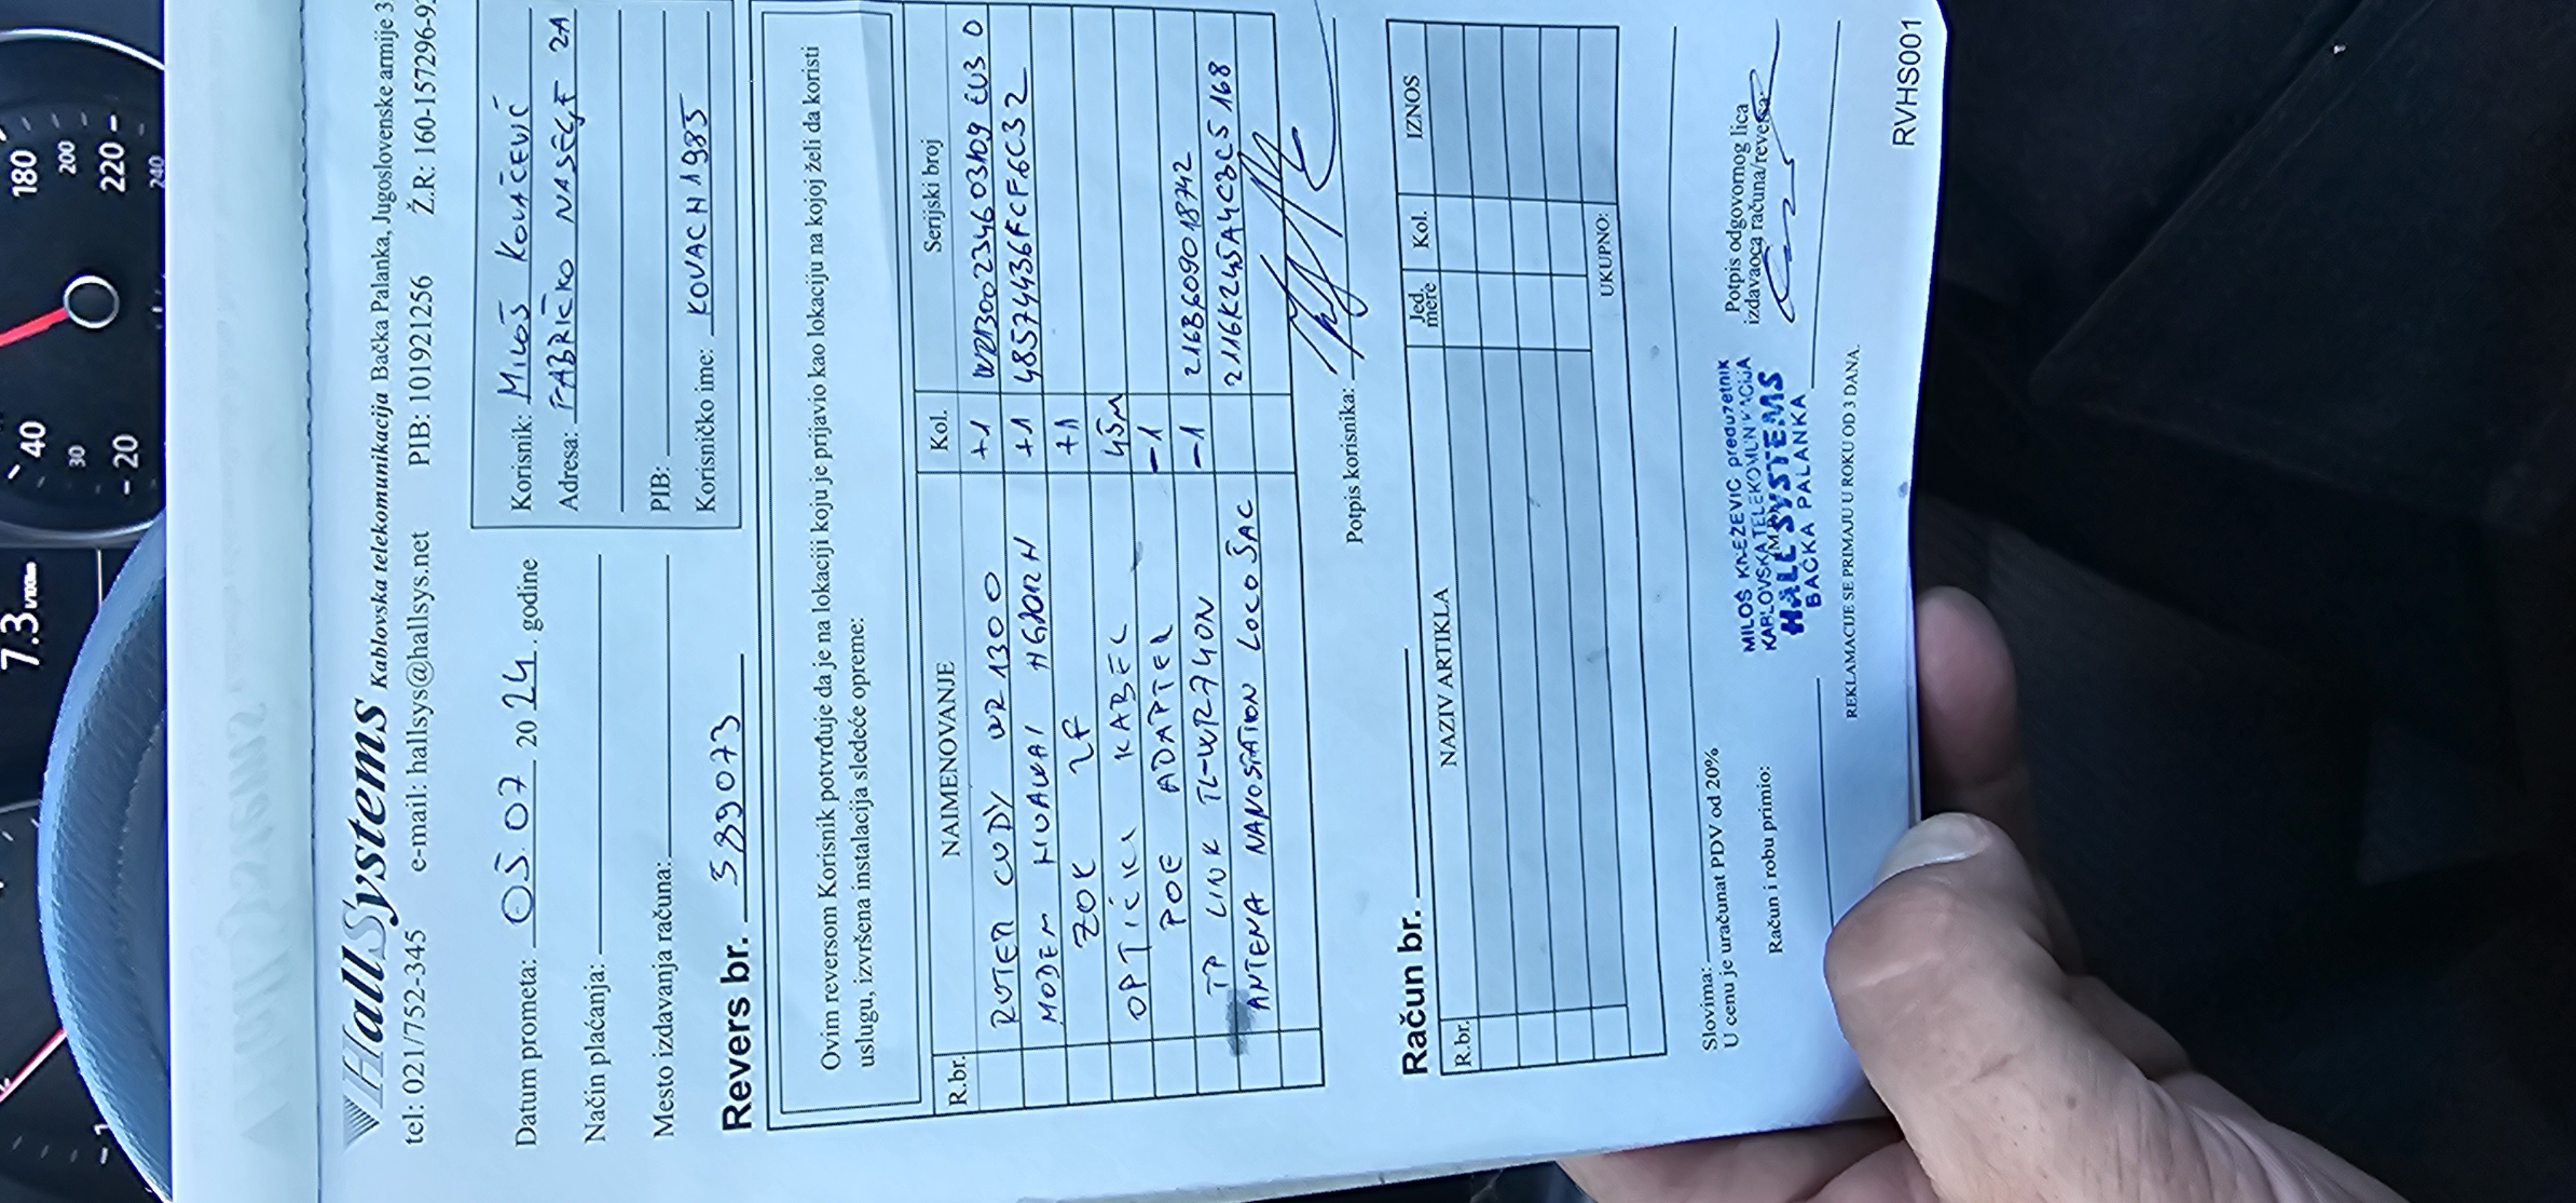 HallSystems Kablovska telekomunikacija Bačka Palanka, Jugoslovenske armije 3
tel: 021/752-345 e-mail: hallsys@hallsys.net PIB: 101921256 Ž.R: 160-157296-9
Datum prometa: 05.07.2024. godine
Način plaćanja:
Mesto izdavanja računa:
Korisnik: MILOŠ KOVAČEVIĆ
Adresa: FABRIČKO NASEЉE 21
PIB:
Korisničko ime: KOVACH1985
Revers br. 399073
Ovim reversom Korisnik potvrđuje da je na lokaciji koju je prijavio kao lokaciju na kojoj želi da koristi
uslugu, izvršena instalacija sledeće opreme:
R.br. NAIMENOVANJE Kol. Serijski broj
RUTER CUDY WR1300 +1
MODEM HUAWAI +1 48574436FCF6C32
ZOK 2F +1
OPTIČKI KABEL 45M
POE ADAPTER -1
TP LINK TL-WR740N -1 216B609018742
ANTENA NANOSTATION LOCO ŠAC 2116K245A4C3C5168
Potpis korisnika:
Račun br.
R.br. NAZIV ARTIKLA Jed. mere Kol. IZNOS
UKUPNO:
Slovima:
U cenu je uračunat PDV od 20%
Račun i robu primio:
MILOŠ KNEŽEVIĆ preduzetnik
KABLOVSKA TELEKOMUNIKACIJA
HALL SYSTEMS
BAČKA PALANKA
Potpis odgovornog lica
izdavaoca računa/reversa:
REKLAMACIJE SE PRIMAJU U ROKU OD 3 DANA.
RVHS001
7.3
20
30
40
180
200
220
240